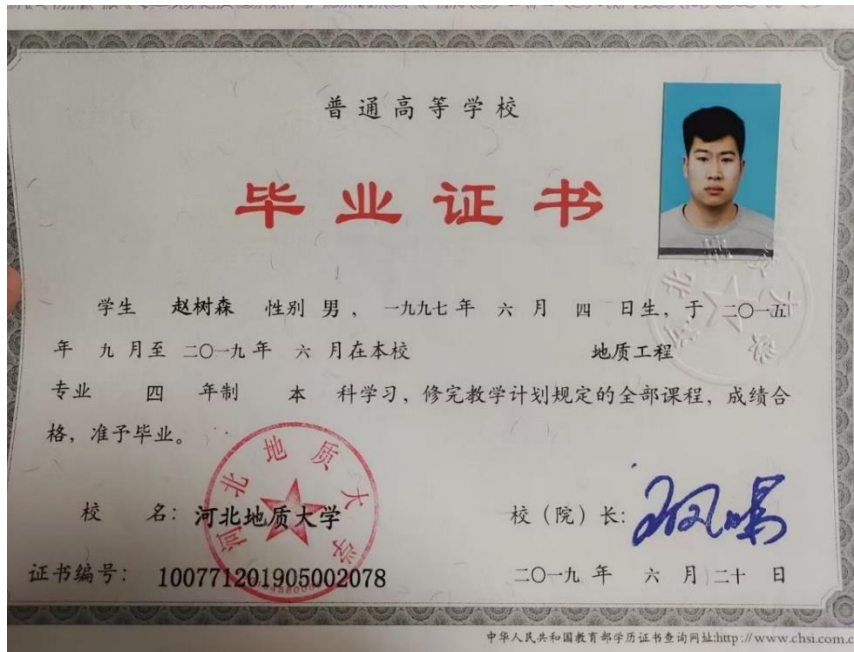 普通高等学校
毕业证书
学生 赵树森 性别 男 ， 一九九七 年 六 月 四 日生，于 二〇一五
年 九 月至 二〇一九 年 六 月在本校 地质工程
专业 四 年制 本 科学习，修完教学计划规定的全部课程，成绩合
格，准予毕业。
河北地质大学
校 名：河北地质大学 校（院）长：
证书编号： 100771201905002078 二〇一九 年 六 月 二十 日
中华人民共和国教育部学历证书查询网址:http://www.chsi.com.c